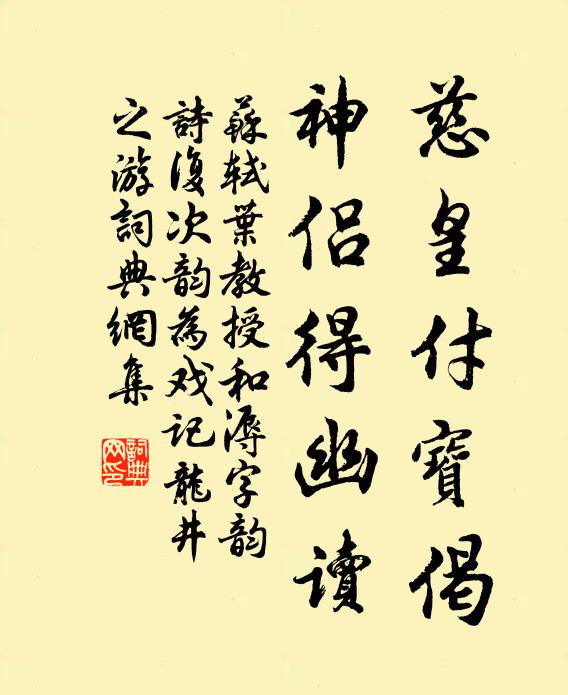 慈皇付寶偈
神侶得幽讀
蘇軾葉教授和溽字韵
詩復次韵為戏記龍井
之游詞典網集
詞典网印